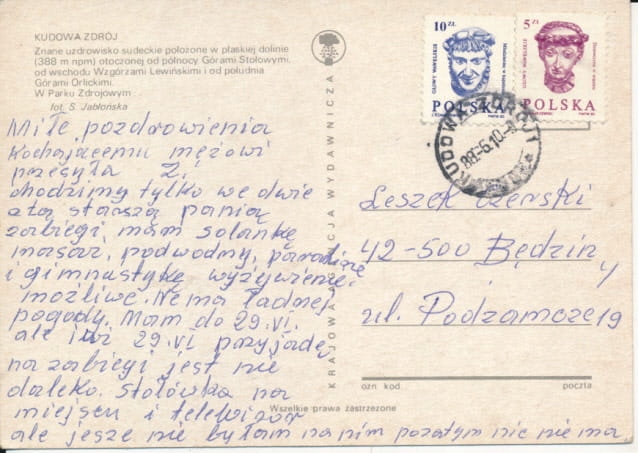 KUDOWA ZDRÓJ
Znane uzdrowisko sudeckie położone w płaskiej dolinie
(388 m npm) otoczonej od północy Górami Stołowymi,
od wschodu Wzgórzami Lewińskimi i od południa
Górami Orlickimi.
W Parku Zdrojowym
fot. S. Jabłońska
Miłe pozdrowienia
kochającemu mężowi
przesyła Z.
chodzimy tylko we dwie
z tą starszą panią
zabiegi mam solankę
masaż, podwodny,
i gimnastykę wyżywienie
możliwe. Nie ma ładnej
pogody. Mam do 29.VI.
ale 29.VI przyjadę
na zabiegi jest nie
daleko. Stołówka na
miejscu i telewizor
ale jesze nie byłam na nim pozatym nic nie ma
KRAJOWA AGENCJA WYDAWNICZA
10 ZŁ
GŁOWY WAWELSKIE
POLSKA
5 ZŁ
GŁOWY WAWELSKIE
POLSKA
KUDOWA ZDRÓJ 1
88-6.10
Leszek Czerski
42-500 Będzin
ul. Podzamcze 19
ozn kod. poczta
Wszelkie prawa zastrzeżone